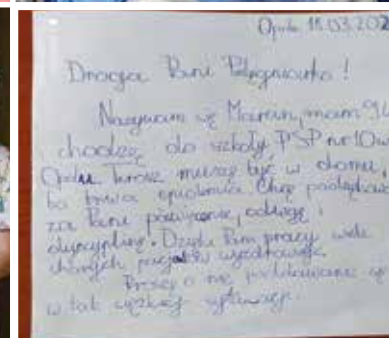 Opole 18.03.202
Droga Pani Pielęgniarko!
Nazywam się Marcin, mam 9 l
chodzę do szkoły PSP nr 10 w
Opolu. Teraz muszę być w domu,
bo trwa epidemia. Chcę podziękow
za Pani poświęcenie, odwagę i
dyscyplinę. Dzięki Pani pracy wiele
chorych pacjentów wyzdrowieje.
Proszę o nie poddawanie się
w tak ciężkiej sytuacji.